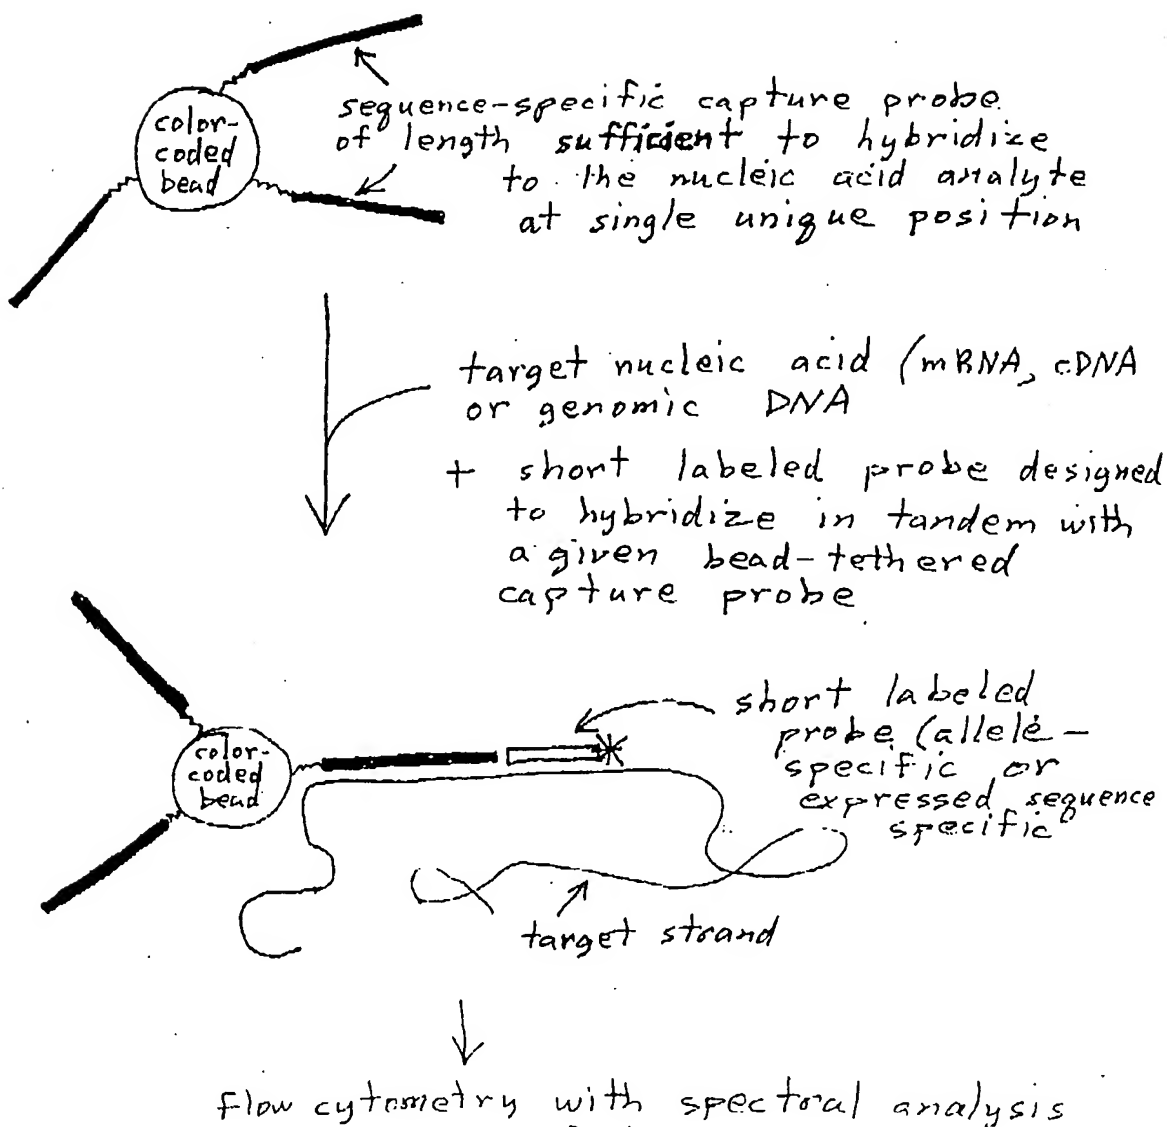 color-
coded
bead
sequence-specific capture probe
of length sufficient to hybridize
to the nucleic acid analyte
at single unique position
target nucleic acid (mRNA, cDNA
or genomic DNA
+ short labeled probe designed
to hybridize in tandem with
a given bead-tethered
capture probe
short labeled
probe (allele-
specific or
expressed sequence
specific
color-
coded
bead
target strand
flow cytometry with spectral analysis